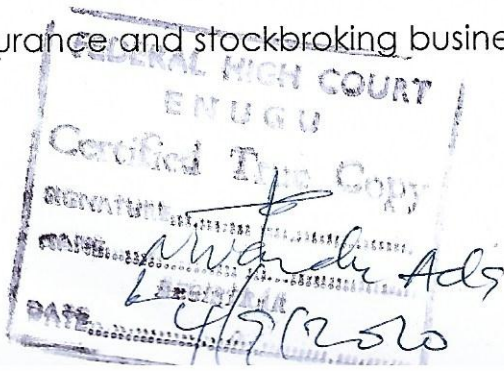 urance and stockbroking busine
FEDERAL HIGH COURT
ENUGU
Certified True Copy
SIGNATURE
NAME
Registrar
DATE 4/9/2020